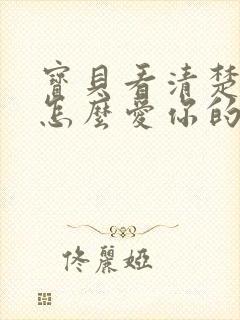 寶貝看清楚
怎麼愛你的
佟麗婭